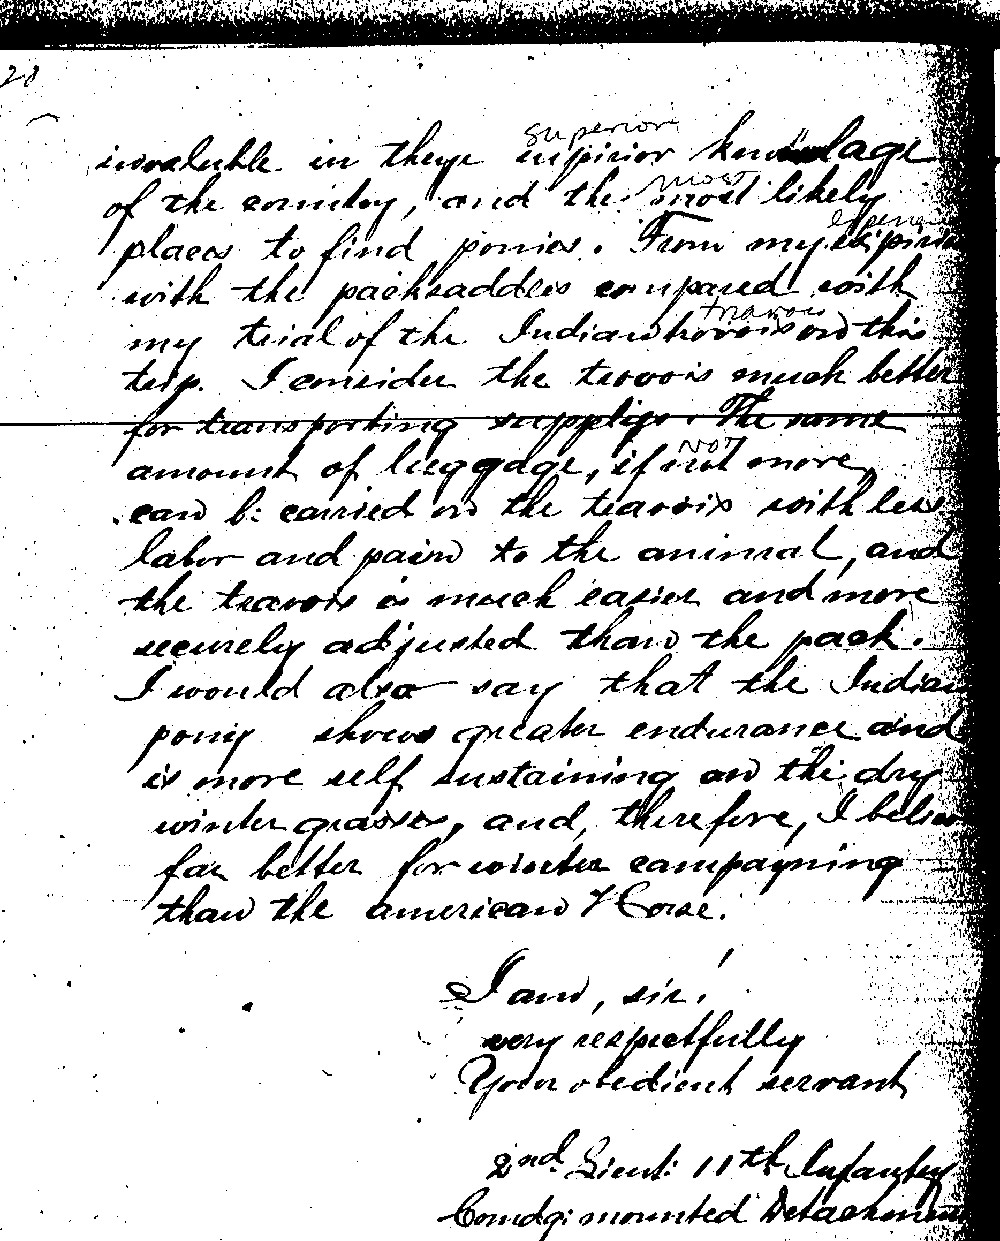 28
superior
invaluable in theyr supirior knowlage
most
of the country, and the most likely
places to find ponies. From my
with the packsaddles compared with
travois
my trial of the Indian travois on this
trip. I consider the travois much better
for transporting supplys. The same
not
amount of luggage, if not more,
can be carried on the travois with less
labor and pain to the animal, and
the travois is much easier and more
securely adjusted than the pack.
I would also say that the Indian
pony shows greater endurance and
is more self sustaining on the dry
winter grasses, and, therefore, I
far better for winter campayning
than the american Horse.
I am, sir,
very respectfully
Your obedient servant
2nd Lieut: 11th Infantry
Comdg: mounted Detachment